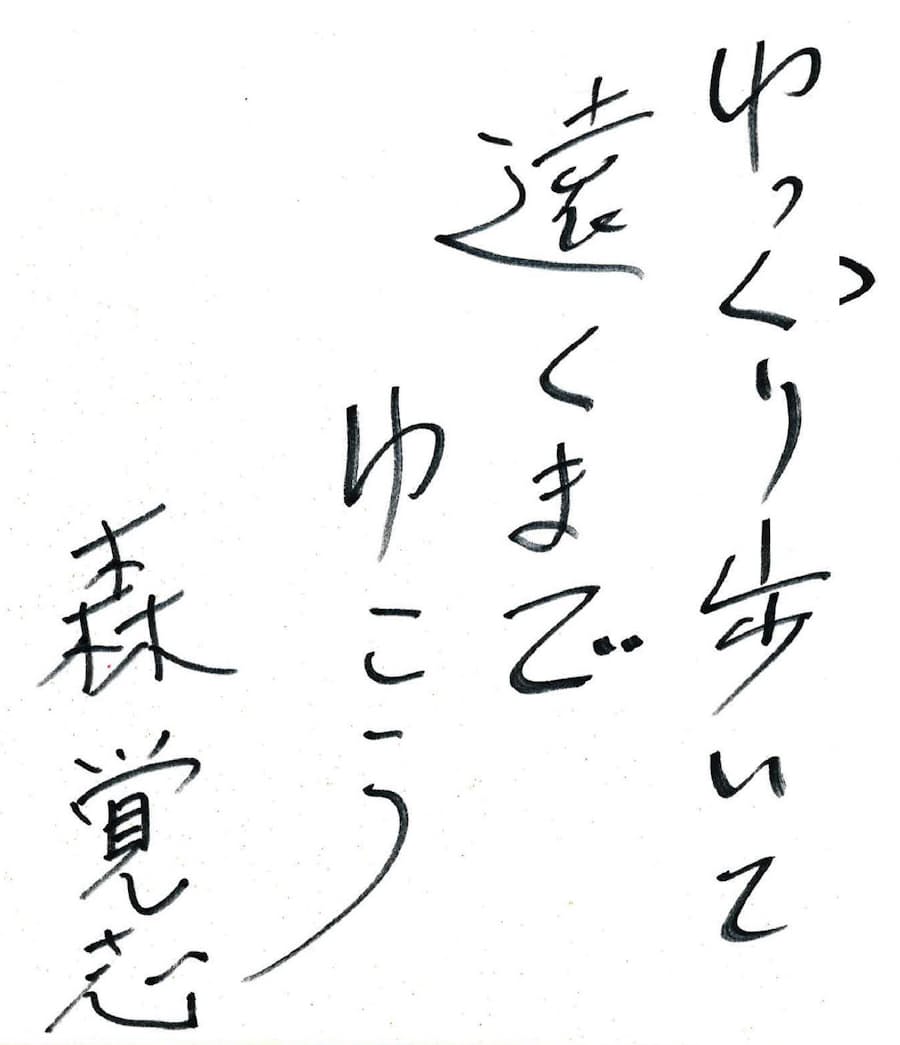 ゆっくり歩いて
遠くまで
ゆこう
森覚志